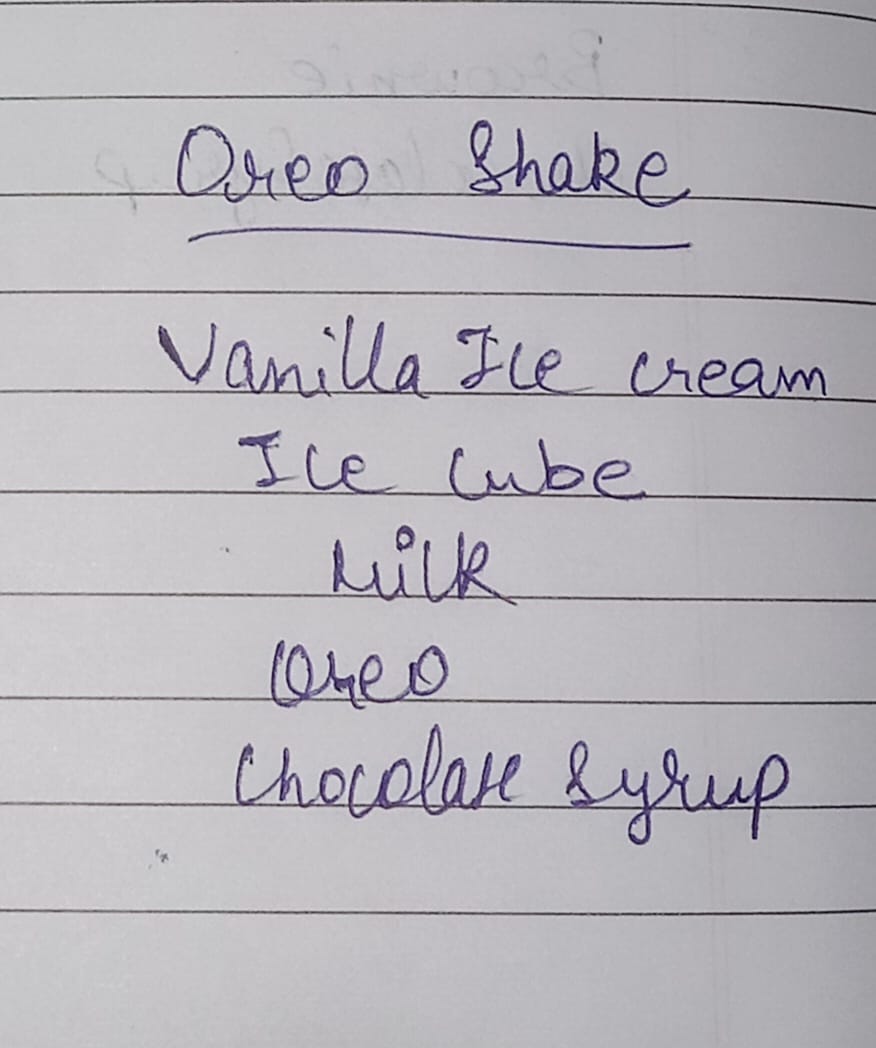 Oreo Shake
Vanilla Ice cream
Ice Cube
Milk
Oreo
Chocolate Syrup